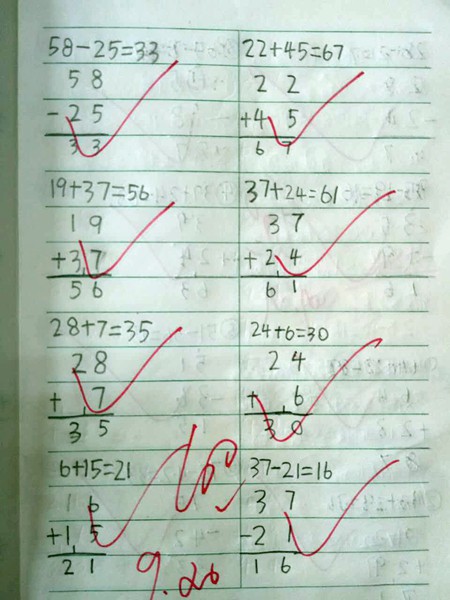 58-25=33
5 8
-2 5
3 3
22+45=67
2 2
+4 5
6 7
19+37=56
1 9
+3 7
5 6
37+24=61
3 7
+2 4
6 1
28+7=35
2 8
+ 7
3 5
24+6=30
2 4
+ 6
3 0
6+15=21
1 6
+1 5
2 1
37-21=16
3 7
-2 1
1 6
9.26